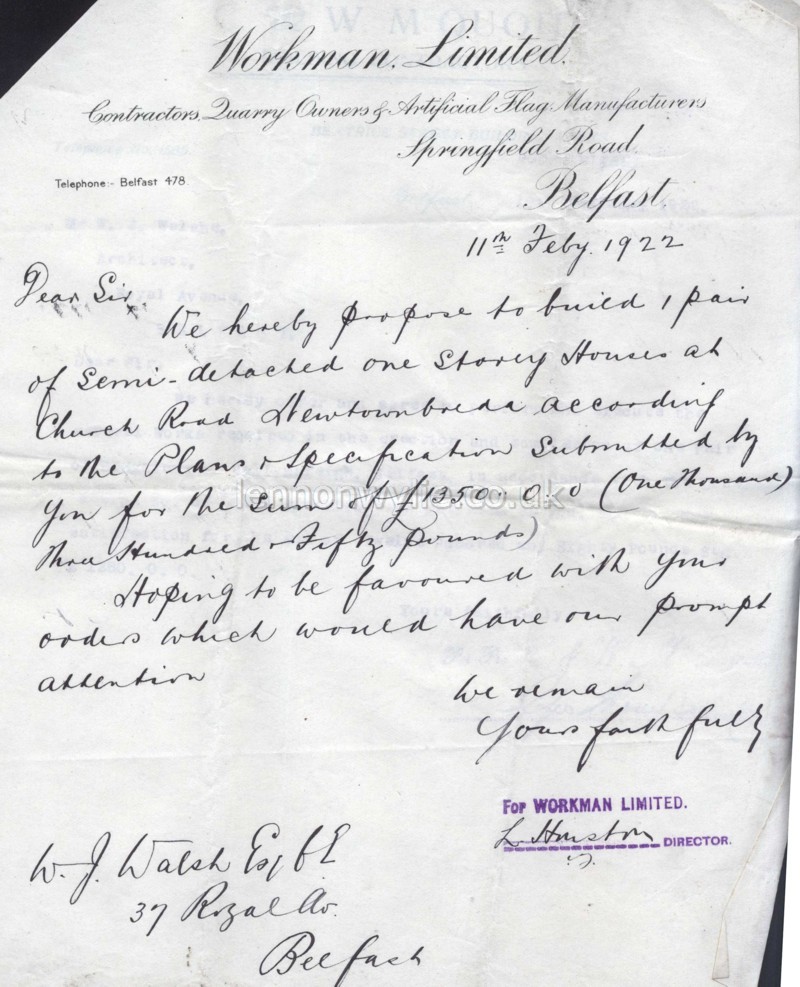 Workman, Limited.
Contractors, Quarry Owners & Artificial Flag Manufacturers
Springfield Road,
Telephone:- Belfast 478.
Belfast,
11th Feby. 1922
Dear Sir,
We hereby propose to build 1 pair
of Semi-detached one Storey Houses at
Church Road Newtownbreda according
to the Plans & Specification Submitted by
you for the Sum of £1350.0.0 (One Thousand)
Three Hundred & Fifty pounds)
Hoping to be favoured with your
orders which would have our prompt
attention
We remain
Yours faithfully
For WORKMAN LIMITED.
L Houston DIRECTOR.
W. J. Walsh Esq C E
37 Royal Av.
Belfast
lennonwylie.co.uk